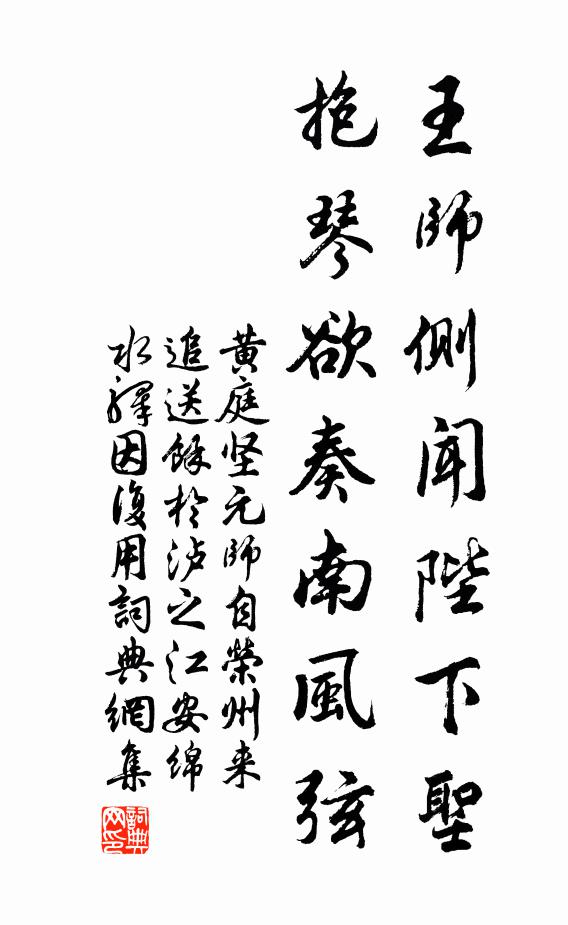 王師側聞陛下聖
抱琴欲奏南風弦
黄庭坚元師自榮州来
追送餘於泸之江安绵
水驛因復用詞典網集
詞典
网印